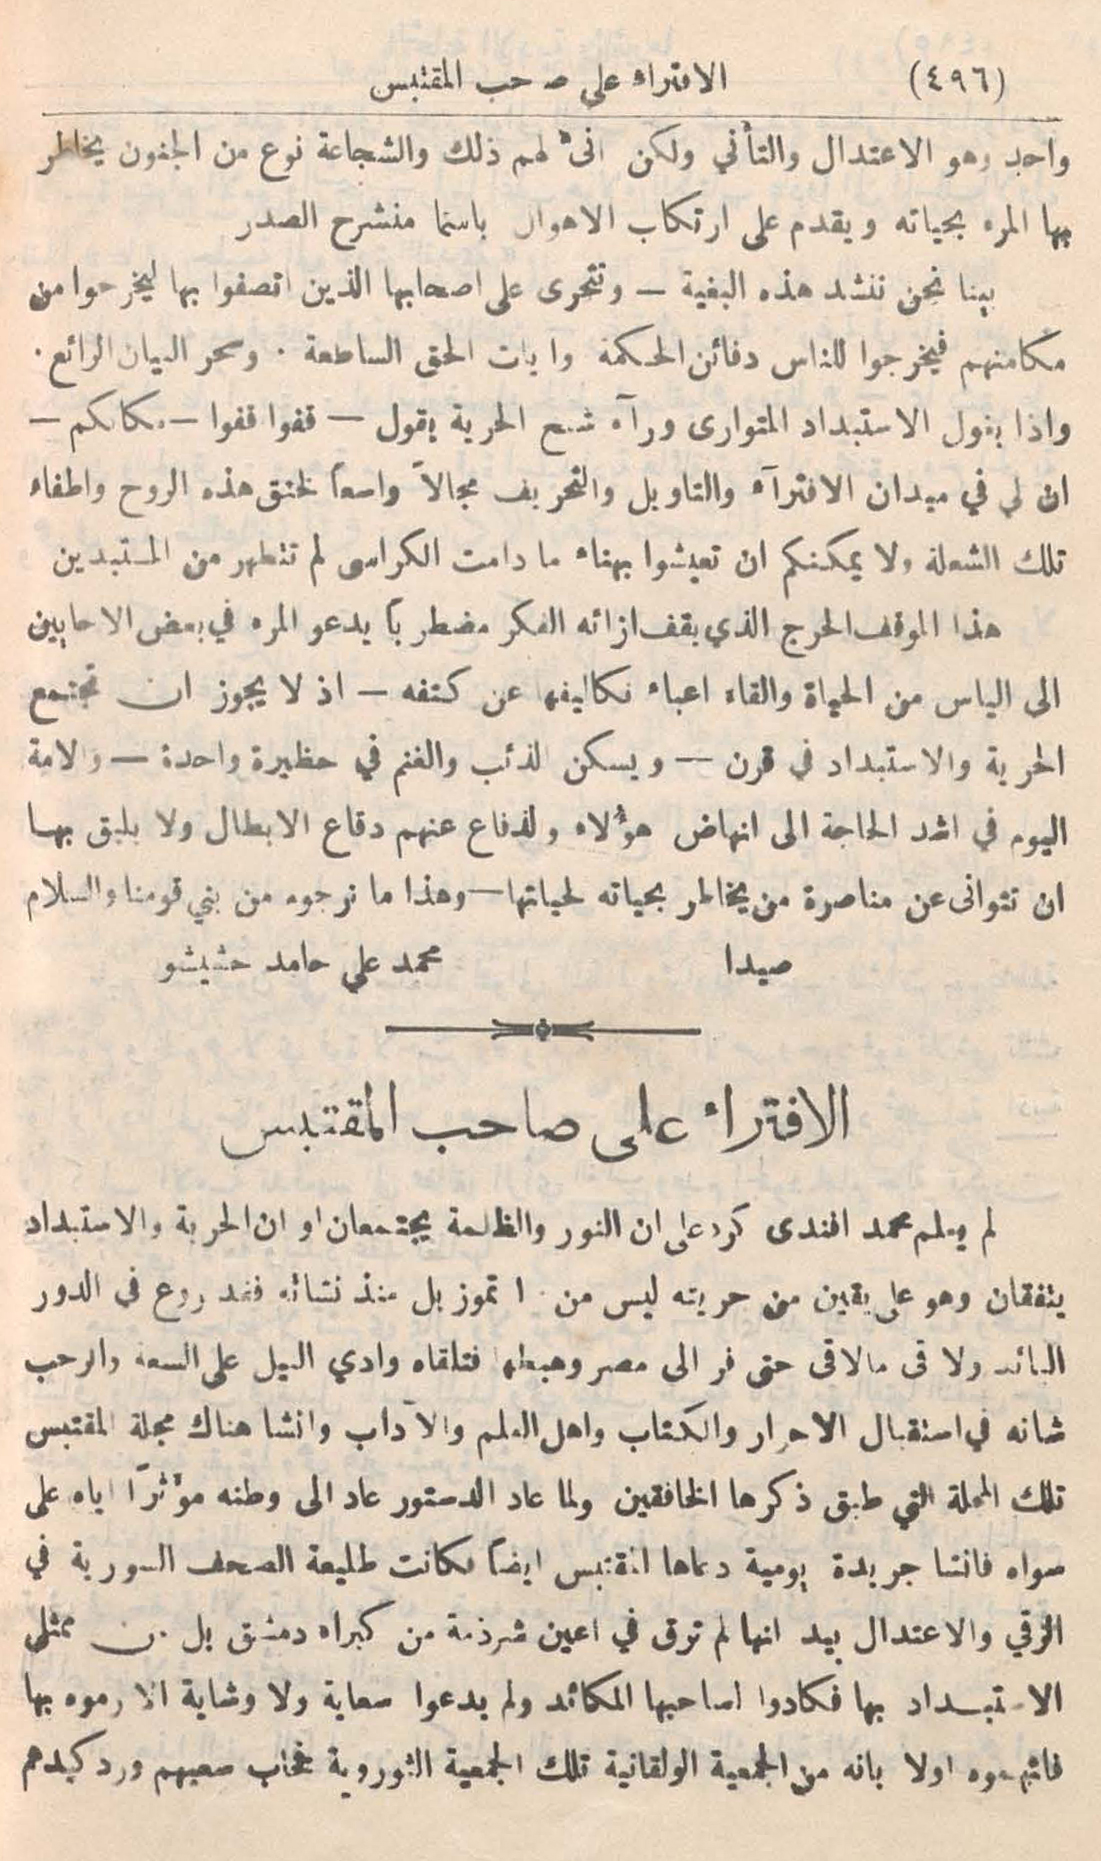 (٤٩٦) الافتراء على صاحب المقتبس
واحد وهو الاعتدال والتأني ولكن انىَّ لهم ذلك والشجاعة نوع من الجنون يخاطر
بها المرء بحياته ويقدم على ارتكاب الاهوال باسما منشرح الصدر
بينا نحن ننشد هذه البغية — ونتحرى على اصحابها الذين اتصفوا بها ليخرجوا من
مكامنهم فيخرجوا للناس دفائن الحكمة وايات الحق الساطعة . وسحر البيان الرائع .
واذا بغول الاستبداد المتوارى ورآء شبح الحرية يقول — قفوا قفوا — مكانكم —
ان لي في ميدان الافترآء والتاويل والتحريف مجالاً واسعاً لخنق هذه الروح واطفاء
تلك الشعلة ولا يمكنكم ان تعيشوا بهناء ما دامت الكراسى لم تتطهر من المستبدين
هذا الموقف الحرج الذي يقف ازائه الفكر مضطرباً يدعو المرء في بعض الاحايين
الى الياس من الحياة والقاء اعباء تكاليفها عن كتفه — اذ لا يجوز ان تجتمع
الحرية والاستبداد في قرن — ويسكن الذئب والغنم في حظيرة واحدة — والامة
اليوم في اشد الحاجة الى انهاض هؤلاء والدفاع عنهم دفاع الابطال ولا يليق بها
ان تتوانى عن مناصرة من يخاطر بحياته لحياتها — وهذا ما نرجوه من بني قومنا والسلام
صيدا محمد علي حامد حشيشو
الافتراء على صاحب المقتبس
لم يعلم محمد افندى كرد على ان النور والظلمة يجتمعان او ان الحرية والاستبداد
يتفقان وهو على يقين من حريته ليس من ١ تموز بل منذ نشأته فقد روع في الدور
البائد ولاقى مالاقى حتى فر الى مصر وهبطها فتلقاه وادي النيل على السعة والرحب
شانه في استقبال الاحرار والكتاب واهل العلم والآداب وانشا هناك مجلة المقتبس
تلك المجلة التي طبق ذكرها الخافقين ولما عاد الدستور عاد الى وطنه مؤثرًا اياه على
سواه فانشا جريدة يومية دعاها المقتبس ايضاً فكانت طليعة الصحف السورية في
الرقي والاعتدال بيد انها لم ترق في اعين شرذمة من كبراء دمشق بل من ممثلي
الاستبداد بها فكادوا لصاحبها المكائد ولم يدعوا سعاية ولا وشاية الا رموه بها
فاتهموه اولا بانه من الجمعية الولقانية تلك الجمعية الثوروية فخاب سعيهم ورد كيدهم